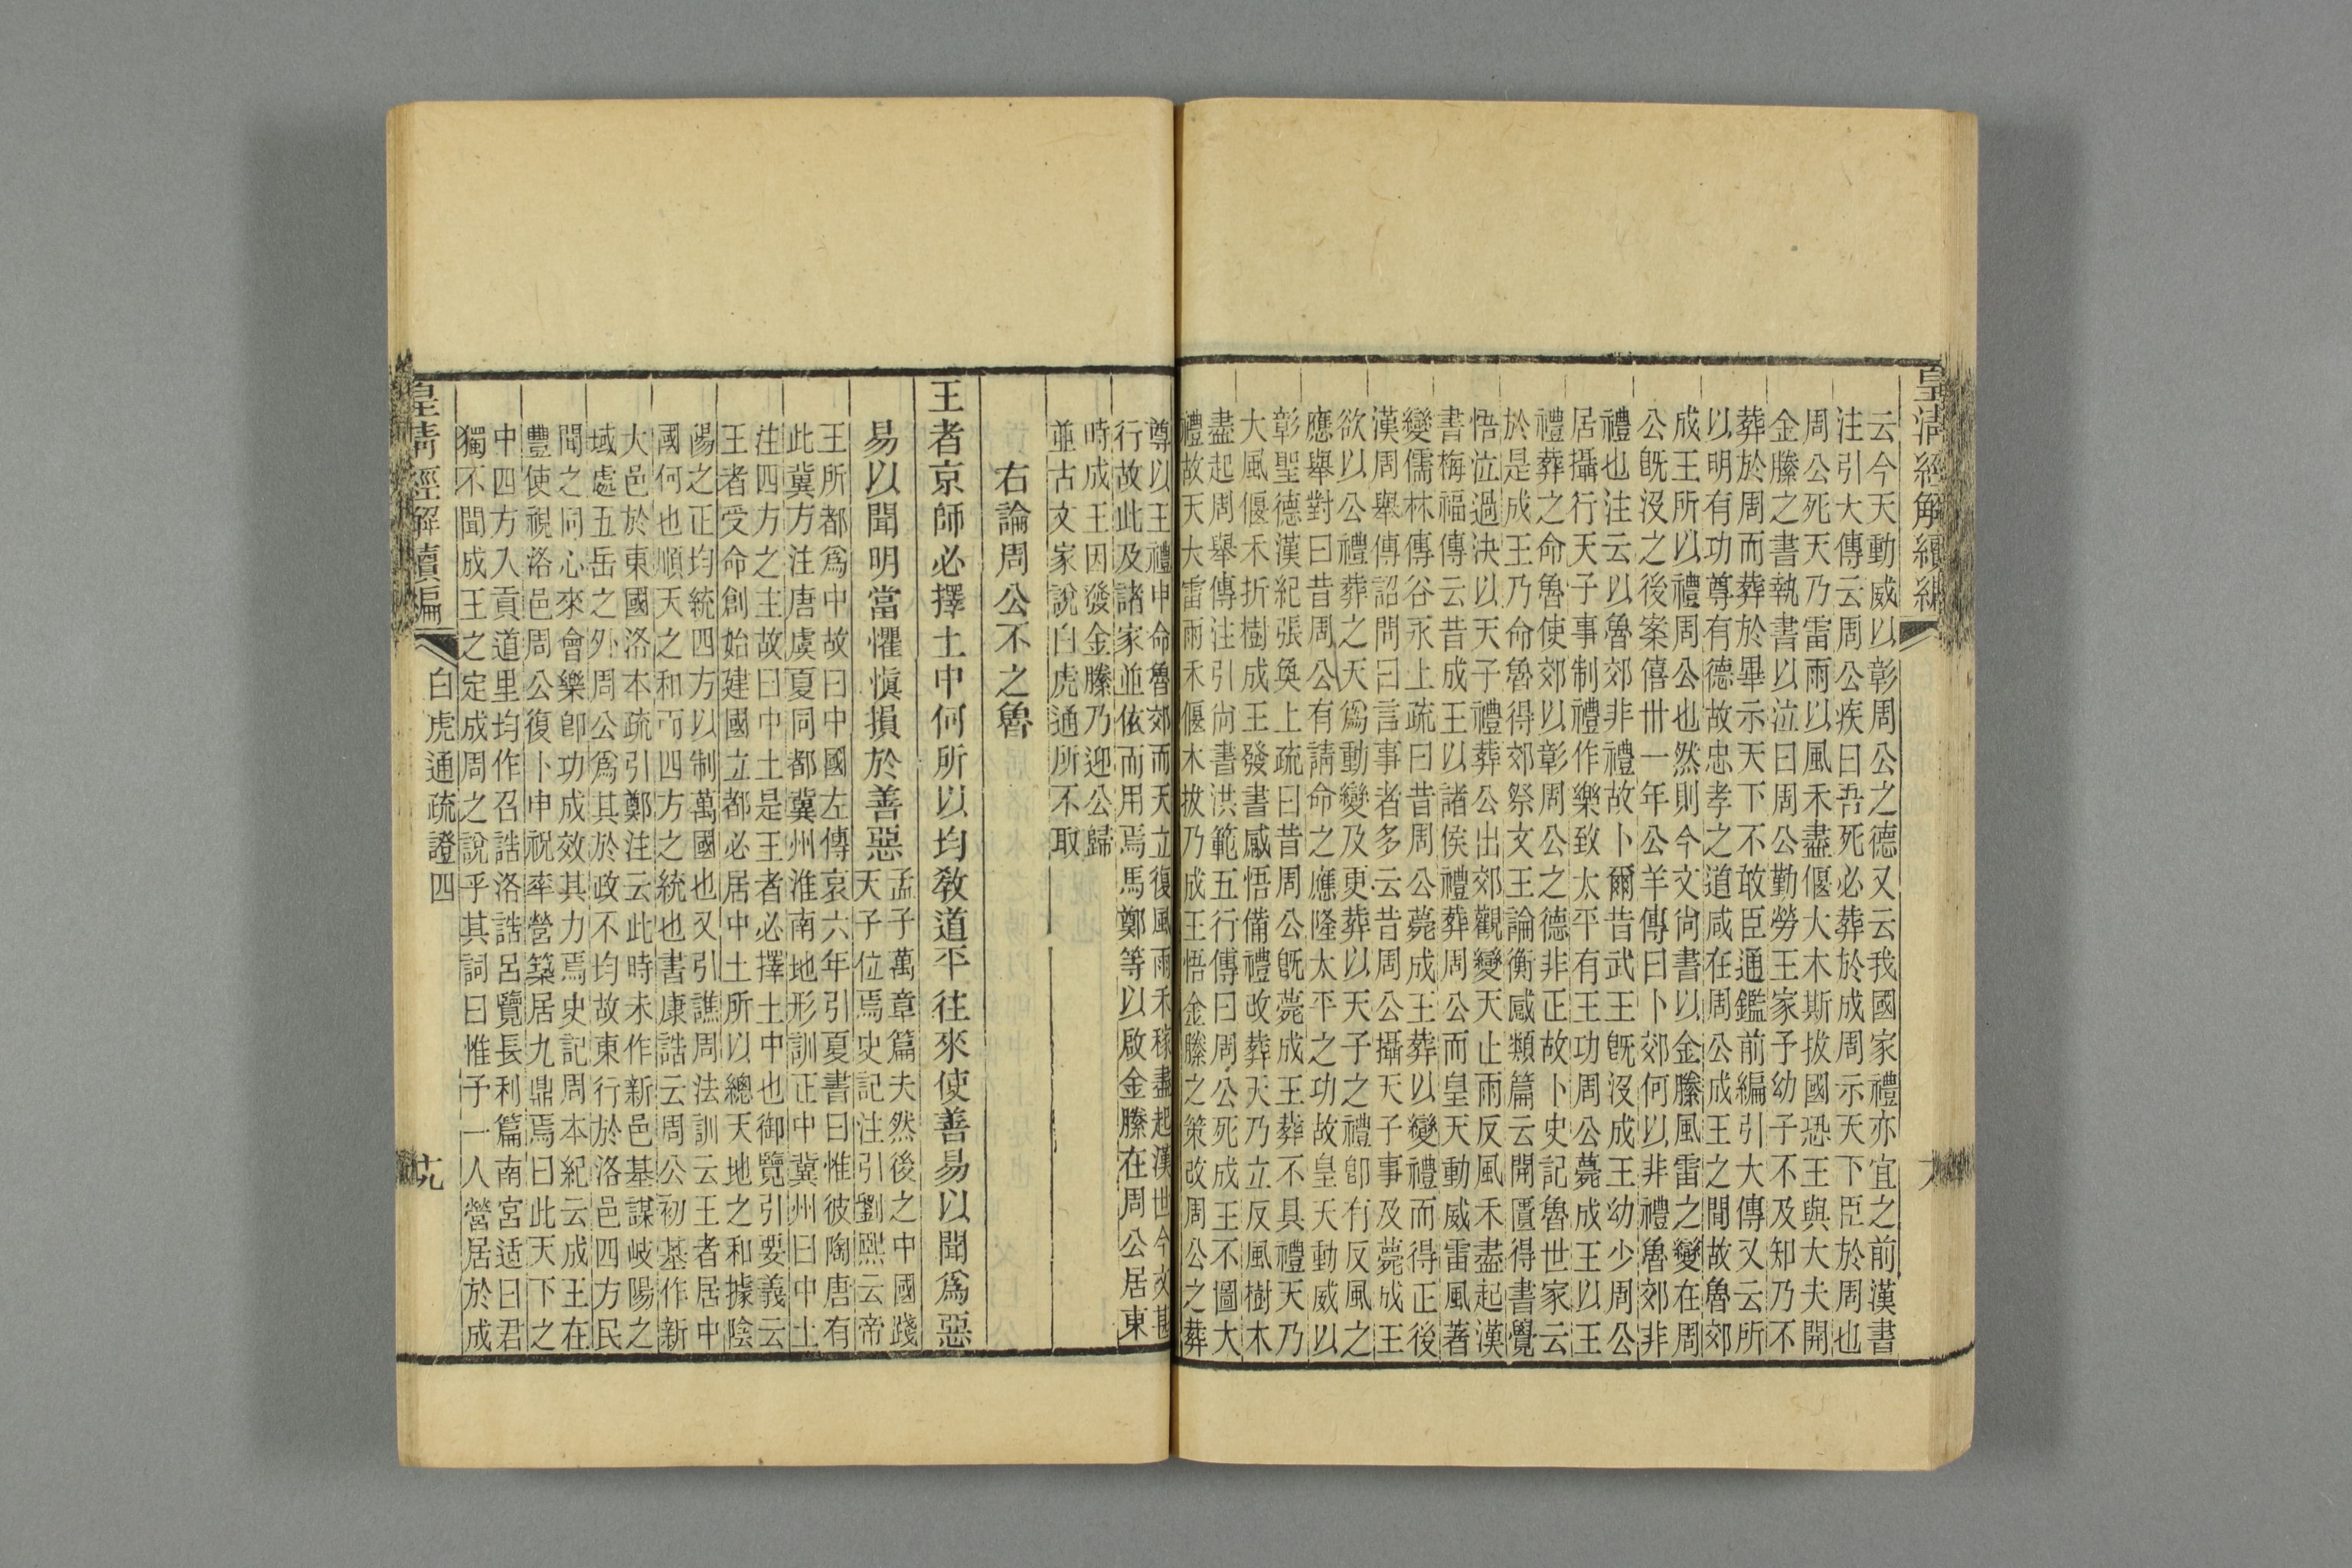 皇清經解續編
云今天動威以彰周公之德又云我國家禮亦宜之前漢書
注引大傳云周公疾曰吾死必葬於成周示天下臣於周也
周公死天乃雷雨以風禾盡偃大木斯拔國恐王與大夫開
金縢之書執書以泣曰周公勤勞王家予幼子不及知乃不
葬於周而葬於畢示天下不敢臣通鑑前編引大傳又云所
以明有功尊有德故忠孝之道咸在周公成王之間故魯郊
成王所以禮周公也然則今文尚書以金縢風雷之變在周
公旣沒之後案僖卅一年公羊傳曰卜郊何以非禮魯郊非
禮也注云以魯郊非禮故卜爾昔武王旣沒成王幼少周公
居攝行天子事制禮作樂致太平有王功周公薨成王以王
禮葬之命魯使郊以彰周公之德非正故卜史記魯世家云
於是成王乃命魯得郊祭文王論衡感類篇云開匱得書覺
悟泣過決以天子禮葬公出郊觀變天止雨反風禾盡起漢
書梅福傳云昔成王以諸侯禮葬周公而皇天動威雷風著
變儒林傳谷永上疏曰昔周公薨成王葬以變禮而得正後
漢周舉傳詔問曰言事者多云昔周公攝天子事及薨成王
欲以公禮葬之天爲動變及更葬以天子之禮卽有反風之
應舉對曰昔周公有請命之應隆太平之功故皇天動威以
彰聖德漢紀張奐上疏曰昔周公旣薨成王葬不具禮天乃
大風偃禾折樹成王發書感悟備禮改葬天乃立反風樹木
盡起周舉傳注引尚書洪範五行傳曰周公死成王不圖大
禮故天大雷雨禾偃木拔乃成王悟金縢之策改周公之葬
尊以王禮申命魯郊而天立復風雨禾稼盡起漢世今文甚
行故此及諸家並依而用焉馬鄭等以啟金縢在周公居東
時成王因發金縢乃迎公歸
並古文家說白虎通所不取
右論周公不之魯
王者京師必擇土中何所以均敎道平往來使善易以聞爲惡
易以聞明當懼愼損於善惡
孟子萬章篇夫然後之中國踐
天子位焉史記注引劉熙云帝
王所都爲中故曰中國左傳哀六年引夏書曰惟彼陶唐有
此冀方注唐虞夏同都冀州淮南地形訓正中冀州曰中土
注四方之主故曰中土是王者必擇土中也御覽引要義云
王者受命創始建國立都必居中土所以總天地之和據陰
陽之正均統四方以制萬國也又引譙周法訓云王者居中
國何也順天之和而四方之統也書康誥云周公初基作新
大邑於東國洛本疏引鄭注云此時未作新邑基謀岐陽之
域處五岳之外周公爲其於政不均故東行於洛邑四方民
聞之同心來會樂卽功成效其力焉史記周本紀云成王在
豐使視洛邑周公復卜申視卒營築居九鼎焉曰此天下之
中四方入貢道里均作召誥洛誥呂覽長利篇南宮适曰君
獨不聞成王之定成周之說乎其詞曰惟予一人營居於成
皇清經解續編
白虎通疏證四